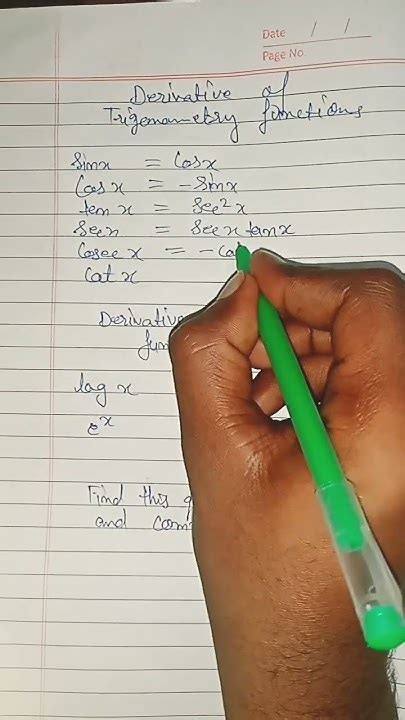 Date / /
Page No.
Derivative of
Trigonometry functions
Sinx = Cosx
Cosx = -Sinx
tan x = Sec²x
Secx = Secx tanx
Cosec x = -co
Cot x
Derivative
fun
log x
eˣ
Find this q
and com